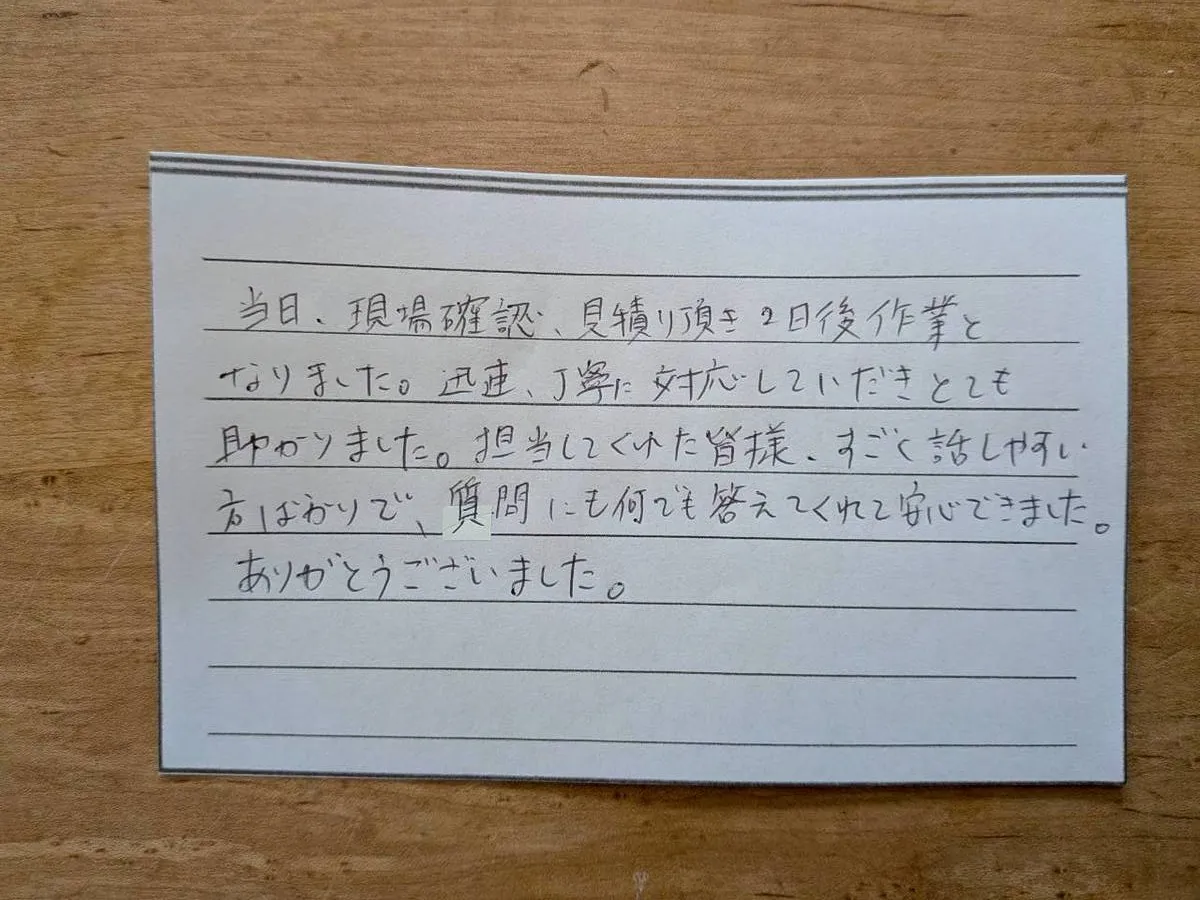 当日、現場確認、見積り頂き2日後作業と
なりました。迅速、丁寧に対応していだきとても
助かりました。担当してくれた皆様、すごく話しやすい
方ばかりで、質問にも何でも答えてくれて安心できました。
ありがとうございました。